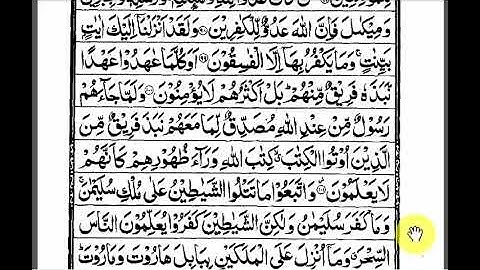 وَمِيْكٰىلَ فَاِنَّ اللّٰهَ عَدُوٌّ لِّلْكٰفِرِيْنَ ۝ وَلَقَدْ اَنْزَلْنَاۤ اِلَيْكَ اٰيٰتٍۭ
بَيِّنٰتٍ ۚ وَمَا يَكْفُرُ بِهَاۤ اِلَّا الْفٰسِقُوْنَ ۝ اَوَكُلَّمَا عٰهَدُوْا عَهْدًا
نَّبَذَهٗ فَرِيْقٌ مِّنْهُمْ ؕ بَلْ اَكْثَرُهُمْ لَا يُؤْمِنُوْنَ ۝ وَلَمَّا جَآءَهُمْ
رَسُوْلٌ مِّنْ عِنْدِ اللّٰهِ مُصَدِّقٌ لِّمَا مَعَهُمْ نَبَذَ فَرِيْقٌ مِّنَ
الَّذِيْنَ اُوْتُوا الْكِتٰبَ ۙ كِتٰبَ اللّٰهِ وَرَآءَ ظُهُوْرِهِمْ كَاَنَّهُمْ
لَا يَعْلَمُوْنَ ۝ وَاتَّبَعُوْا مَا تَتْلُوا الشَّيٰطِيْنُ عَلٰى مُلْكِ سُلَيْمٰنَ ۚ
وَمَا كَفَرَ سُلَيْمٰنُ وَلٰكِنَّ الشَّيٰطِيْنَ كَفَرُوْا يُعَلِّمُوْنَ النَّاسَ
السِّحْرَ ۗ وَمَاۤ اُنْزِلَ عَلَى الْمَلَكَيْنِ بِبَابِلَ هَارُوْتَ وَمَارُوْتَ ؕ